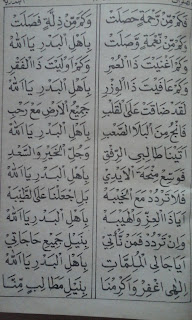 وَكَمْ مِنْ رَحْمَةٍ حَصَلَتْ وَكَمْ مِنْ ذِلَّةٍ فَصَلَتْ
وَكَمْ مِنْ نِعْمَةٍ وَصَلَتْ بِاَهْلِ الْبَدْرِ يَا اَللهُ
وَكَمْ اَغْنَيْتَ ذَا الْعُمْرِ وَكَمْ اَوْلَيْتَ ذَا الْفَقْرِ
وَكَمْ عَافَيْتَ ذَا الْوِزْرِ بِاَهْلِ الْبَدْرِ يَا اَللهُ
لَقَدْ ضَاقَتْ عَلَى الْقَلْبِ جَمِيْعُ الْاَرْضِ مَعْ رَحْبِ
فَانْجِ مِنَ الْبَلَا الصَّعْبِ بِاَهْلِ الْبَدْرِ يَا اَللهُ
اَتَيْنَا طَالِبِى الرِّفْقِ وَجُلِّ الْخَيْرِ وَالسَّعْدِ
فَوَسِّعْ مِنْحَةَ الْاَيْدِيْ بِاَهْلِ الْبَدْرِ يَا اَللهُ
فَلَا تَرْدُدْ مَعَ الْخَيْبَةْ بَلِ اجْعَلْنَا عَلَى الطَّيْبَةْ
اَيَا ذَا الْعِزِّ وَالْهَيْبَةْ بِاَهْلِ الْبَدْرِ يَا اَللهُ
وَاِنْ تَرْدُدْ فَمَنْ نَأْتِيْ بِنَيْلِ جَمِيْعِ حَاجَاتِيْ
اَيَا جَالِى الْمُلِمَّاتِ بِاَهْلِ الْبَدْرِ يَا اَللهُ
اِلٰهِى اغْفِرْ وَاَكْرِمْنَا بِنَيْلِ مَطَالِبٍ مِنَّا